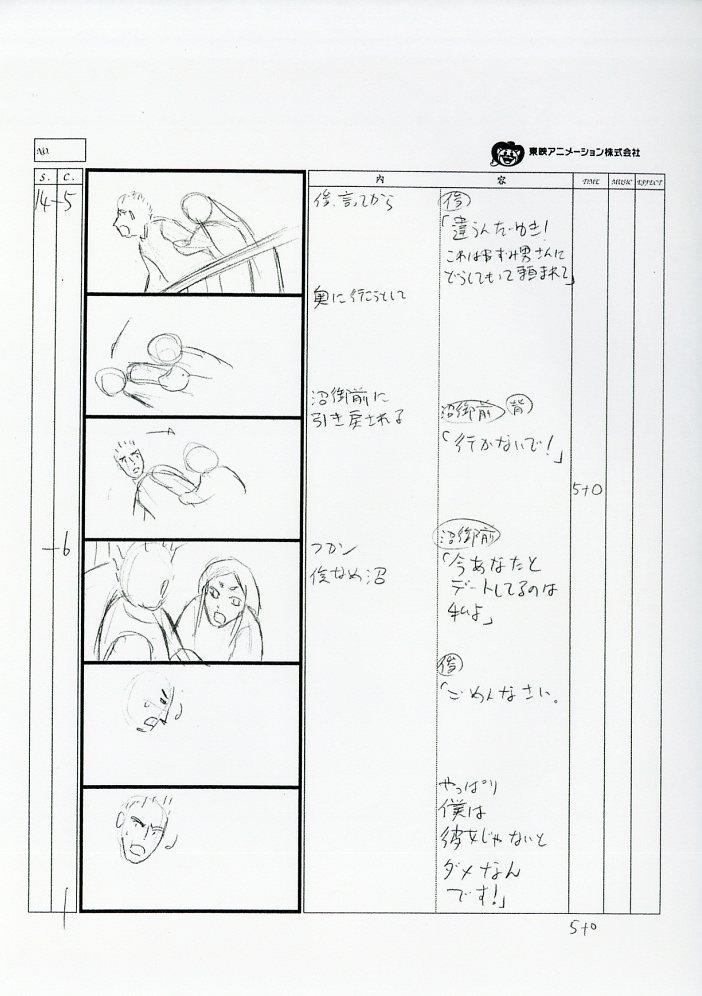 NO.
東映アニメーション株式会社
S. C. 内 容 TIME MUSIC EFFECT
14-5
俊、言ってから
俊
「違うんだゆき!
これはねずみ男さんに
どうしてもって頼まれて」
奥に行こうとして
沼御前に
引き戻される
沼御前 背
「行かないで!」
5+0
-6
フカン
俊なめ沼
沼御前
「今あなたと
デートしてるのは
私よ」
俊
「ごめんなさい。
やっぱり
僕は
彼女じゃないと
ダメなん
です!」
5+0